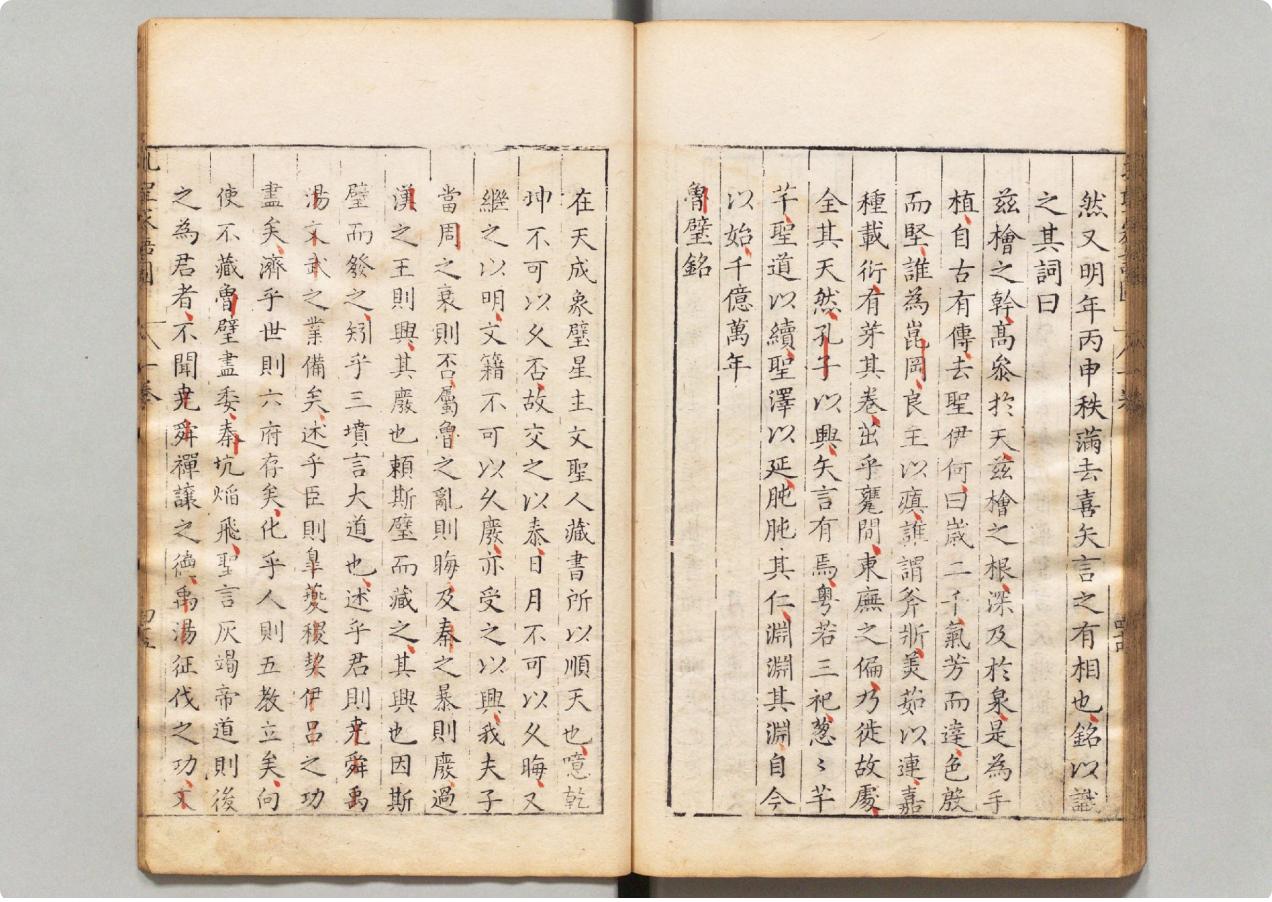 然又明年丙申秩滿去喜矢言之有相也銘以識
之其詞曰
茲檜之幹高參於天茲檜之根深及於泉是為手
植自古有傳去聖伊何曰嵗二千氣芳而達色殷
而堅誰為崑岡良玉以瘨誰謂斧斨美茹以連嘉
種載衍有芽其卷出乎甃間東廡之偏乃徙故處
全其天然孔子以興矢言有焉粤若三祀蔥〻芊
芊聖道以續聖澤以延肫肫其仁淵淵其淵自今
以始千億萬年
魯壁銘
在天成象壁星主文聖人藏書所以順天也噫乾
坤不可以久否故交之以泰日月不可以久晦又
繼之以明文籍不可以久廢亦受之以興我夫子
當周之衰則否屬魯之亂則晦及秦之暴則廢過
漢之王則興其廢也賴斯壁而藏之其興也因斯
壁而發之矧乎三墳言大道也述乎君則堯舜禹
湯文武之業備矣述乎臣則皐夔稷契伊呂之功
盡矣濟乎世則六府存矣化乎人則五教立矣向
使不藏魯壁盡委秦坑熖飛聖言灰竭帝道則後
之為君者不聞堯舜禪讓之德禹湯征伐之功不